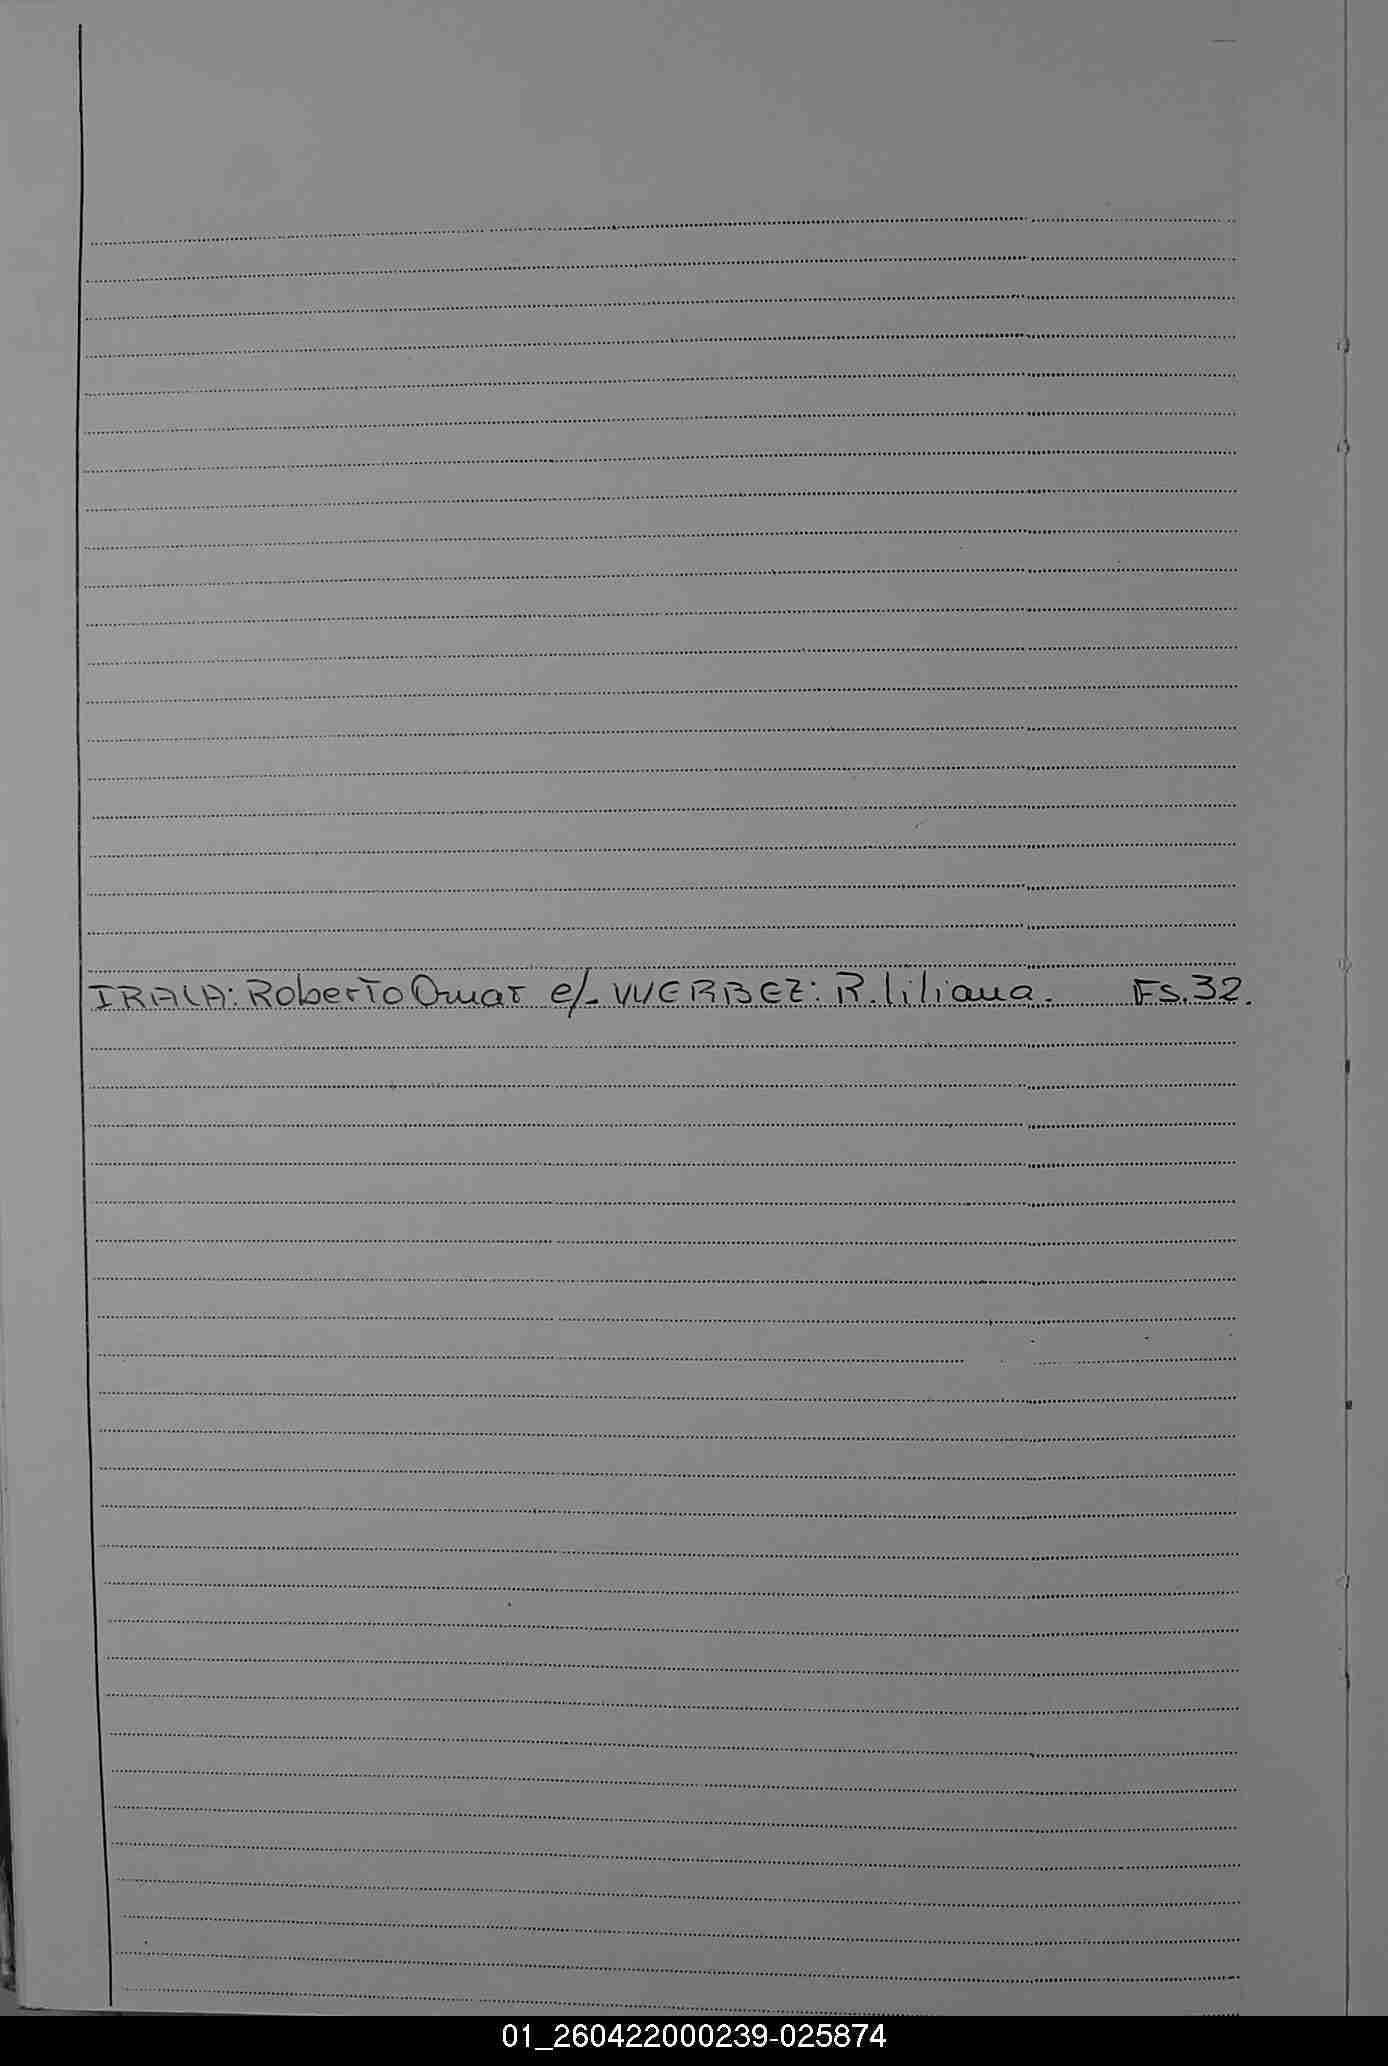 IRALA: Roberto Omar c/. WERBEZ: R. liliana. Fs. 32.
01_260422000239-025874